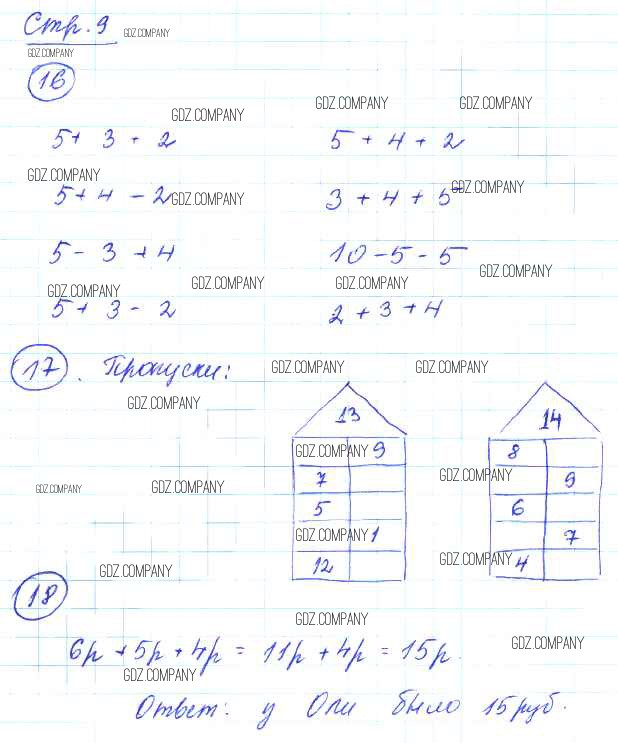 Стр. 9 GDZ.COMPANY
GDZ.COMPANY
16
GDZ.COMPANY GDZ.COMPANY GDZ.COMPANY
5 + 3 + 2 5 + 4 + 2
GDZ.COMPANY GDZ.COMPANY
5 + 4 - 2 GDZ.COMPANY 3 + 4 + 5
5 - 3 + 4 10 - 5 - 5
GDZ.COMPANY GDZ.COMPANY GDZ.COMPANY GDZ.COMPANY
5 + 3 - 2 2 + 3 + 4
17. Пропуски: GDZ.COMPANY GDZ.COMPANY
GDZ.COMPANY 13 14
GDZ.COMPANY 9 8
GDZ.COMPANY GDZ.COMPANY 7 GDZ.COMPANY 9
5 6
GDZ.COMPANY 1 7
GDZ.COMPANY 12 GDZ.COMPANY 4
18
GDZ.COMPANY
6р + 5р + 4р = 11р + 4р = 15р. GDZ.COMPANY
GDZ.COMPANY
Ответ: у Оли было 15 руб.